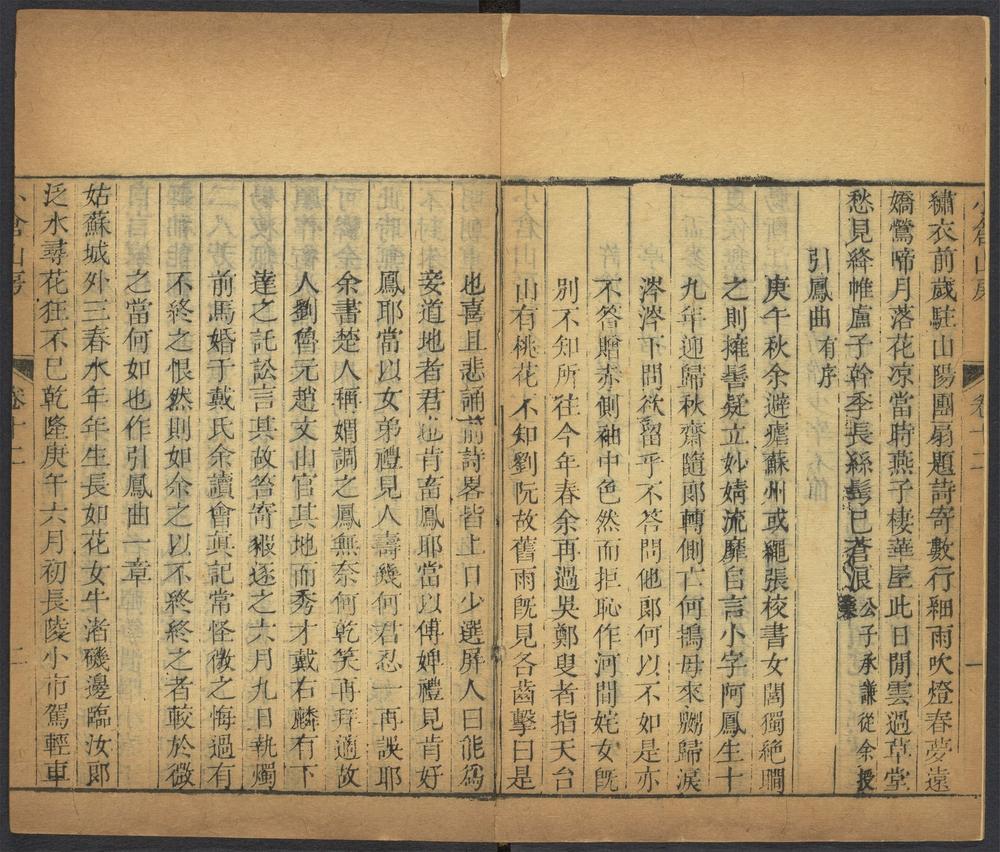 繡衣前歲駐山陽團扇題詩寄數行細雨吹燈春夢遠
嬌鶯啼月落花凉當時燕子棲華屋此日閒雲過草堂
愁見絳帷盧子幹季長絲鬢已蒼浪公子承謙從余授業
引鳳曲有序
庚午秋余避瘧蘇州或繩張校書女閭獨絶瞷
之則擁髻疑立妙婧流靡自言小字阿鳳生十
九年迎歸秋齋隨郞轉側亡何搗母來嬲歸淚
涔涔下問欲留乎不答問他郞何以不如是亦
不答贈赤側袖中色然而拒恥作河間姹女旣
別不知所往今年春余再過吳鄭叟者指天台
山有桃花不知劉阮故舊雨旣見各齒擊曰是
也喜且悲誦前詩畧皆上口少選屏人曰能爲
妾道地者君也肯畜鳳耶當以傅婢禮見肯好
鳳耶當以女弟禮見人壽幾何君忍一再誤耶
余書楚人稱媦調之鳳無奈何乾笑再拜適故
人劉魯元趙文山官其地而秀才戴右麟有下
達之託訟言其故笞寄豭逐之六月九日執燭
前馬婚于戴氏余讀會眞記常怪微之悔過有
不終之恨然則如余之以不終終之者較於微
之當何如也作引鳳曲一章
姑蘇城外三春水年年生長如花女牛渚磯邊臨汝郞
泛水尋花狂不已乾隆庚午六月初長陵小市駕輕車
小倉山房
卷十二
一
小倉山房
卷十二
二